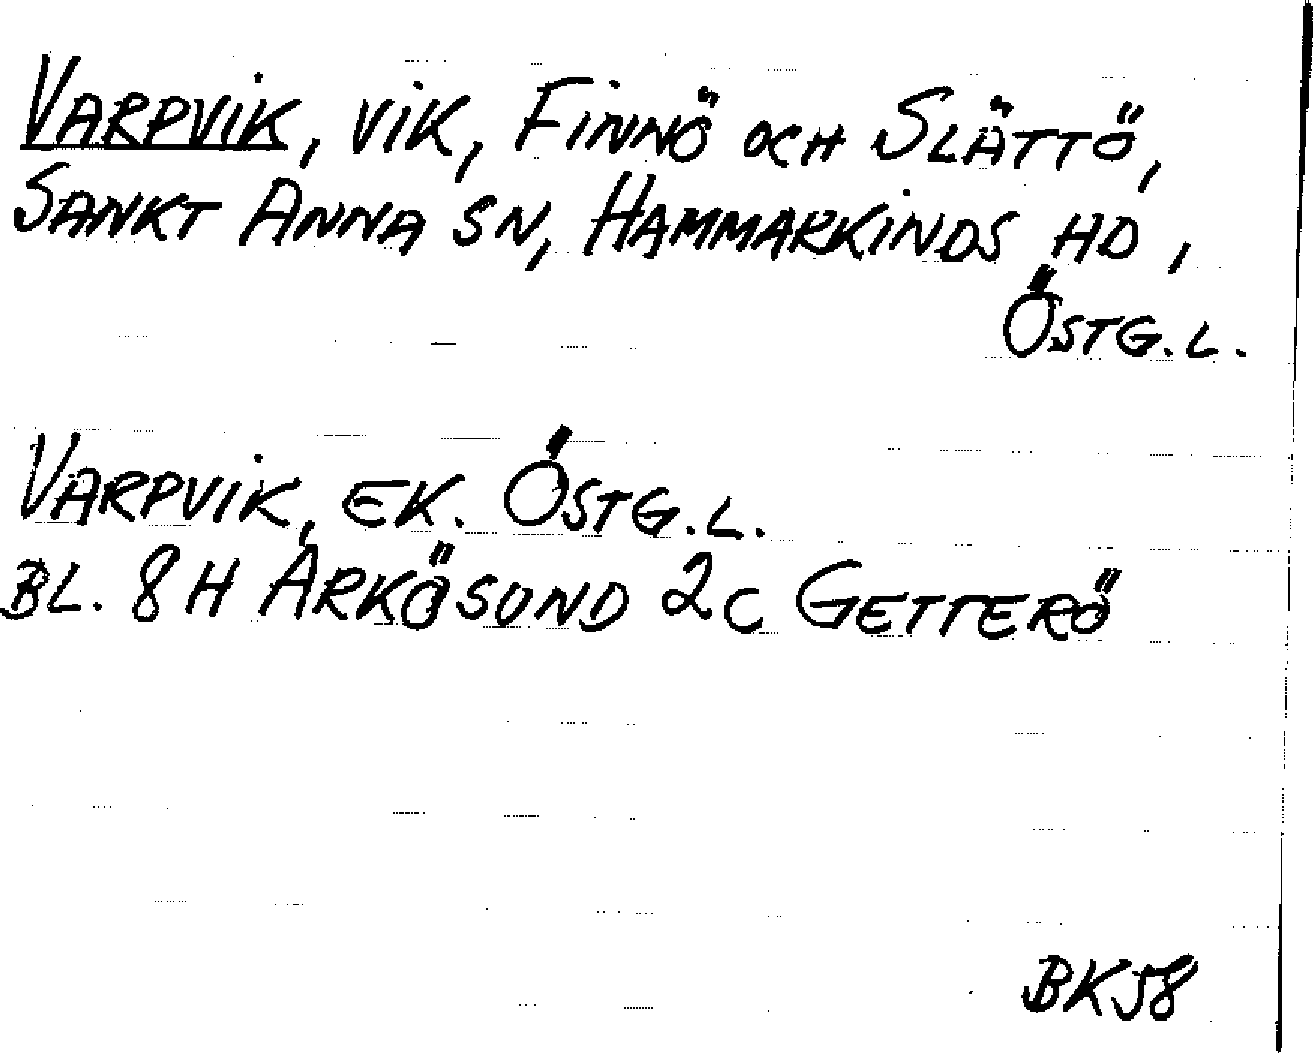 VARPVIK, VIK, FINNÖ OCH SLÄTTÖ,
SANKT ANNA SN, HAMMARKINDS HD,
ÖSTG.L.
VARPVIK, EK. ÖSTG.L.
BL. 8 H ARKÖSUND 2C GETTERÖ
BK58